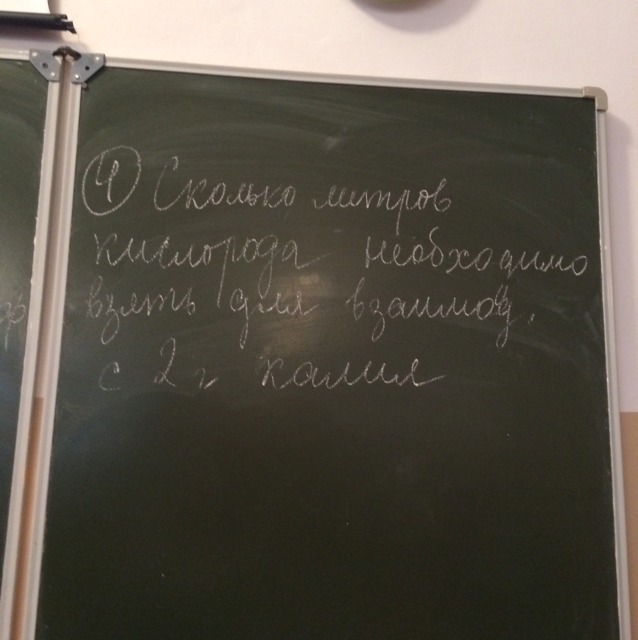 ④ Сколько литров
кислорода необходимо
взять для взаимод.
с 2 г калия